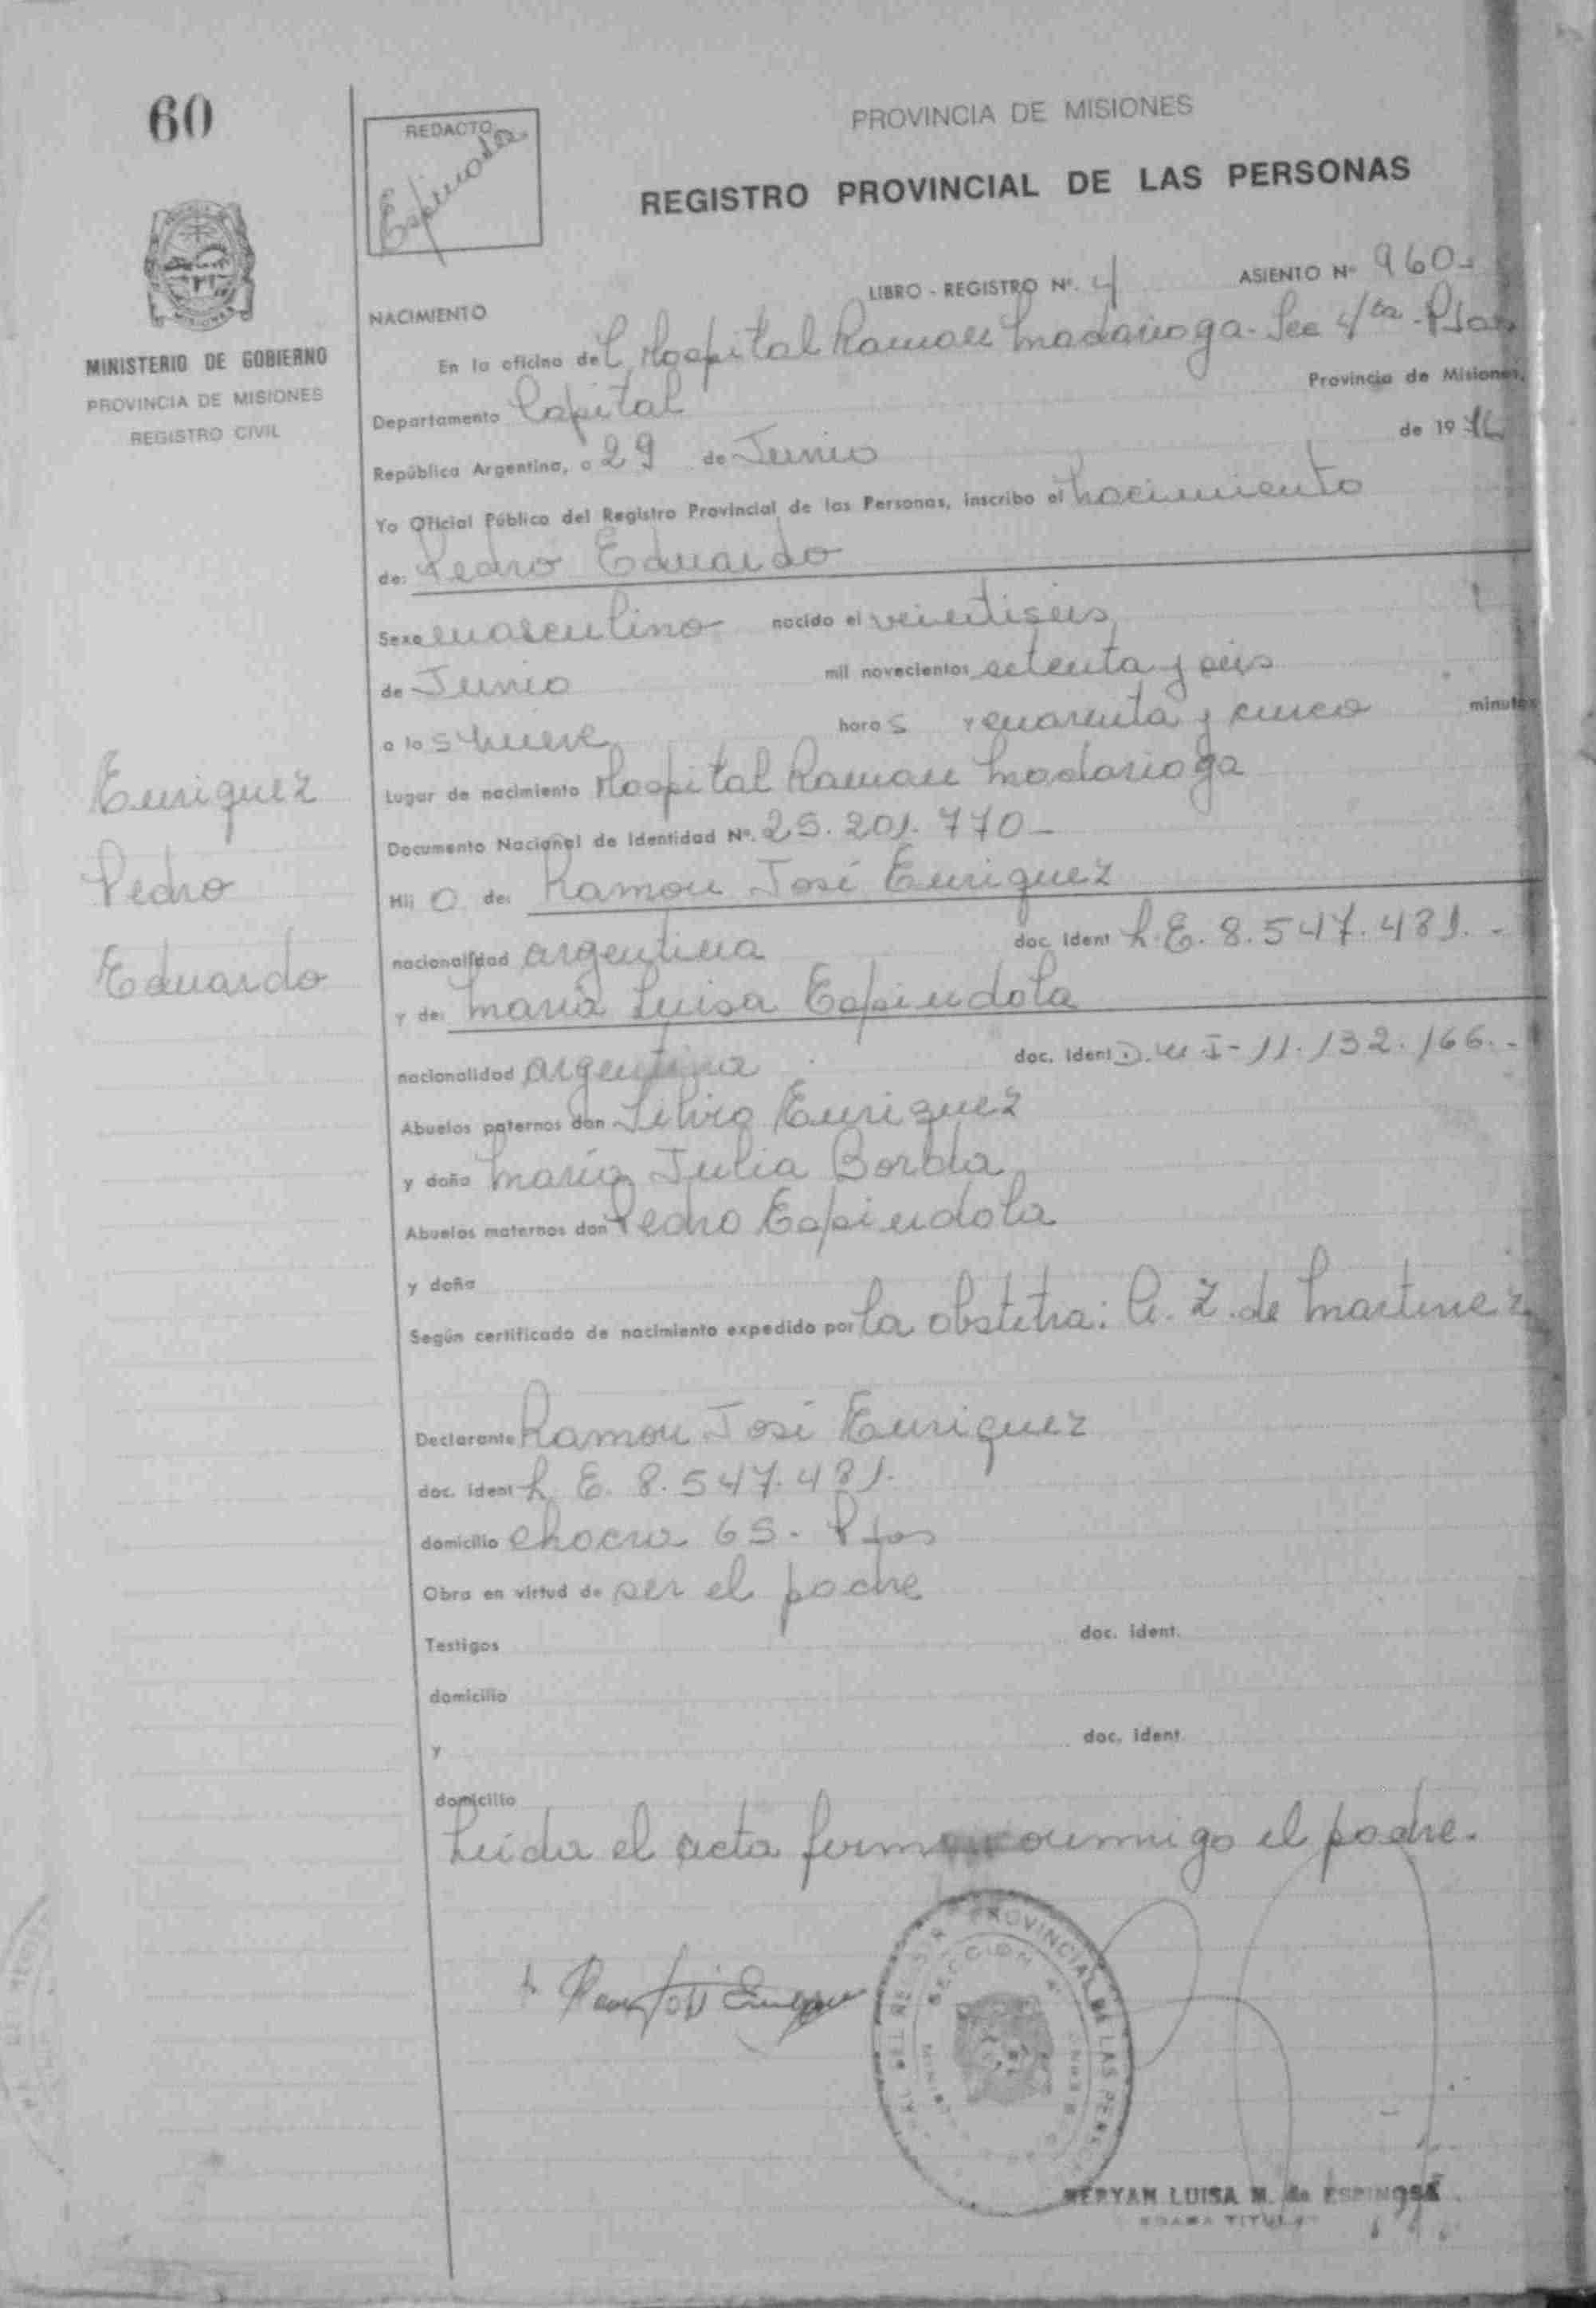 60
REDACTO
PROVINCIA DE MISIONES
REGISTRO PROVINCIAL DE LAS PERSONAS
LIBRO - REGISTRO Nº. 4 ASIENTO Nº 960-
NACIMIENTO
MINISTERIO DE GOBIERNO
PROVINCIA DE MISIONES
REGISTRO CIVIL
En la oficina del Hospital Ramon Madariaga - Sec 4ta - Pdas
Departamento Capital Provincia de Misiones,
República Argentina, a 29 de Junio de 1976
Yo Oficial Público del Registro Provincial de las Personas, inscribo el nacimiento
de: Pedro Eduardo
Sexo masculino nacido el veintiseis
de Junio mil novecientos setenta y seis
a las nueve horas y cuarenta y cinco minutos
Lugar de nacimiento Hospital Ramon Madariaga
Documento Nacional de Identidad Nº. 25.201.770-
Hijo de: Ramon José Enriquez
nacionalidad argentina doc. ident L.E. 8.547.481.-
y de: Maria Luisa Espindola
nacionalidad argentina doc. ident D.N.I- 11.132.166.-
Abuelos paternos don Silvio Enriquez
y doña María Julia Borda
Abuelos maternos don Pedro Espindola
y doña
Según certificado de nacimiento expedido por la obstetra: Z. de Martinez
Declarante Ramon José Enriquez
doc. ident L.E. 8.547.481.
domicilio chacra 65. Pdas
Obra en virtud de ser el padre
Testigos doc. ident.
domicilio
y doc. ident.
domicilio
Leida el acta firma conmigo el padre.
Enriquez
Pedro
Eduardo
PROVINCIAL DE LAS
SECCION 4
MERYAN LUISA M. de ESPINOSA